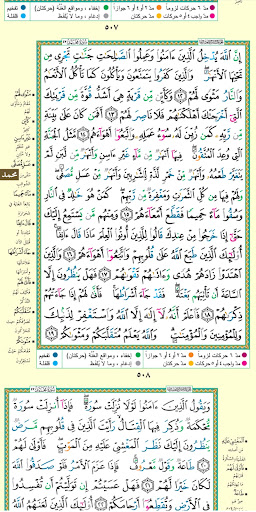 مد ٦ حركات لزوماً مد ٢ أو ٤ أو ٦ جوازاً إخفاء، ومواقع الغُنَّة (حركتان) تفخيم
مد واجب ٤ أو ٥ حركات مد حركتان إدغام، وما لا يُلفَظ قلقلة
٥٠٧
إِنَّ ٱللَّهَ يُدْخِلُ ٱلَّذِينَ ءَامَنُوا۟ وَعَمِلُوا۟ ٱلصَّـٰلِحَـٰتِ جَنَّـٰتٍ تَجْرِى مِن
تَحْتِهَا ٱلْأَنْهَـٰرُ ۖ وَٱلَّذِينَ كَفَرُوا۟ يَتَمَتَّعُونَ وَيَأْكُلُونَ كَمَا تَأْكُلُ ٱلْأَنْعَـٰمُ
وَٱلنَّارُ مَثْوًى لَّهُمْ ﴿١٢﴾ وَكَأَيِّن مِّن قَرْيَةٍ هِىَ أَشَدُّ قُوَّةً مِّن قَرْيَتِكَ
ٱلَّتِىٓ أَخْرَجَتْكَ أَهْلَكْنَـٰهُمْ فَلَا نَاصِرَ لَهُمْ ﴿١٣﴾ أَفَمَن كَانَ عَلَىٰ بَيِّنَةٍ
مِّن رَّبِّهِۦ كَمَن زُيِّنَ لَهُۥ سُوٓءُ عَمَلِهِۦ وَٱتَّبَعُوٓا۟ أَهْوَآءَهُم ﴿١٤﴾ مَّثَلُ ٱلْجَنَّةِ
ٱلَّتِى وُعِدَ ٱلْمُتَّقُونَ ۖ فِيهَآ أَنْهَـٰرٌ مِّن مَّآءٍ غَيْرِ ءَاسِنٍ وَأَنْهَـٰرٌ مِّن لَّبَنٍ لَّمْ
يَتَغَيَّرْ طَعْمُهُۥ وَأَنْهَـٰرٌ مِّنْ خَمْرٍ لَّذَّةٍ لِّلشَّـٰرِبِينَ وَأَنْهَـٰرٌ مِّنْ عَسَلٍ مُّصَفًّى ۖ
وَلَهُمْ فِيهَا مِن كُلِّ ٱلثَّمَرَٰتِ وَمَغْفِرَةٌ مِّن رَّبِّهِمْ ۖ كَمَنْ هُوَ خَـٰلِدٌ فِى ٱلنَّارِ
وَسُقُوا۟ مَآءً حَمِيمًا فَقَطَّعَ أَمْعَآءَهُمْ ﴿١٥﴾ وَمِنْهُم مَّن يَسْتَمِعُ إِلَيْكَ
حَتَّىٰٓ إِذَا خَرَجُوا۟ مِنْ عِندِكَ قَالُوا۟ لِلَّذِينَ أُوتُوا۟ ٱلْعِلْمَ مَاذَا قَالَ ءَانِفًا ۚ
أُو۟لَـٰٓئِكَ ٱلَّذِينَ طَبَعَ ٱللَّهُ عَلَىٰ قُلُوبِهِمْ وَٱتَّبَعُوٓا۟ أَهْوَآءَهُمْ ﴿١٦﴾ وَٱلَّذِينَ
ٱهْتَدَوْا۟ زَادَهُمْ هُدًى وَءَاتَىٰهُمْ تَقْوَىٰهُمْ ﴿١٧﴾ فَهَلْ يَنظُرُونَ إِلَّا
ٱلسَّاعَةَ أَن تَأْتِيَهُم بَغْتَةً ۖ فَقَدْ جَآءَ أَشْرَاطُهَا ۚ فَأَنَّىٰ لَهُمْ إِذَا جَآءَتْهُمْ
ذِكْرَىٰهُمْ ﴿١٨﴾ فَٱعْلَمْ أَنَّهُۥ لَآ إِلَـٰهَ إِلَّا ٱللَّهُ وَٱسْتَغْفِرْ لِذَنۢبِكَ
وَلِلْمُؤْمِنِينَ وَٱلْمُؤْمِنَـٰتِ ۗ وَٱللَّهُ يَعْلَمُ مُتَقَلَّبَكُمْ وَمَثْوَىٰكُمْ ﴿١٩﴾
محمد
مد ٦ حركات لزوماً مد ٢ أو ٤ أو ٦ جوازاً إخفاء، ومواقع الغُنَّة (حركتان) تفخيم
مد واجب ٤ أو ٥ حركات مد حركتان إدغام، وما لا يُلفَظ قلقلة
٥٠٨
وَيَقُولُ ٱلَّذِينَ ءَامَنُوا۟ لَوْلَا نُزِّلَتْ سُورَةٌ ۖ فَإِذَآ أُنزِلَتْ سُورَةٌ
مُّحْكَمَةٌ وَذُكِرَ فِيهَا ٱلْقِتَالُ ۙ رَأَيْتَ ٱلَّذِينَ فِى قُلُوبِهِم مَّرَضٌ
يَنظُرُونَ إِلَيْكَ نَظَرَ ٱلْمَغْشِىِّ عَلَيْهِ مِنَ ٱلْمَوْتِ ۖ فَأَوْلَىٰ لَهُمْ
﴿٢٠﴾ طَاعَةٌ وَقَوْلٌ مَّعْرُوفٌ ۚ فَإِذَا عَزَمَ ٱلْأَمْرُ فَلَوْ صَدَقُوا۟ ٱللَّهَ
لَكَانَ خَيْرًا لَّهُمْ ﴿٢١﴾ فَهَلْ عَسَيْتُمْ إِن تَوَلَّيْتُمْ أَن تُفْسِدُوا۟
فِى ٱلْأَرْضِ وَتُقَطِّعُوٓا۟ أَرْحَامَكُمْ ﴿٢٢﴾ أُو۟لَـٰٓئِكَ ٱلَّذِينَ لَعَنَهُمُ ٱللَّهُ